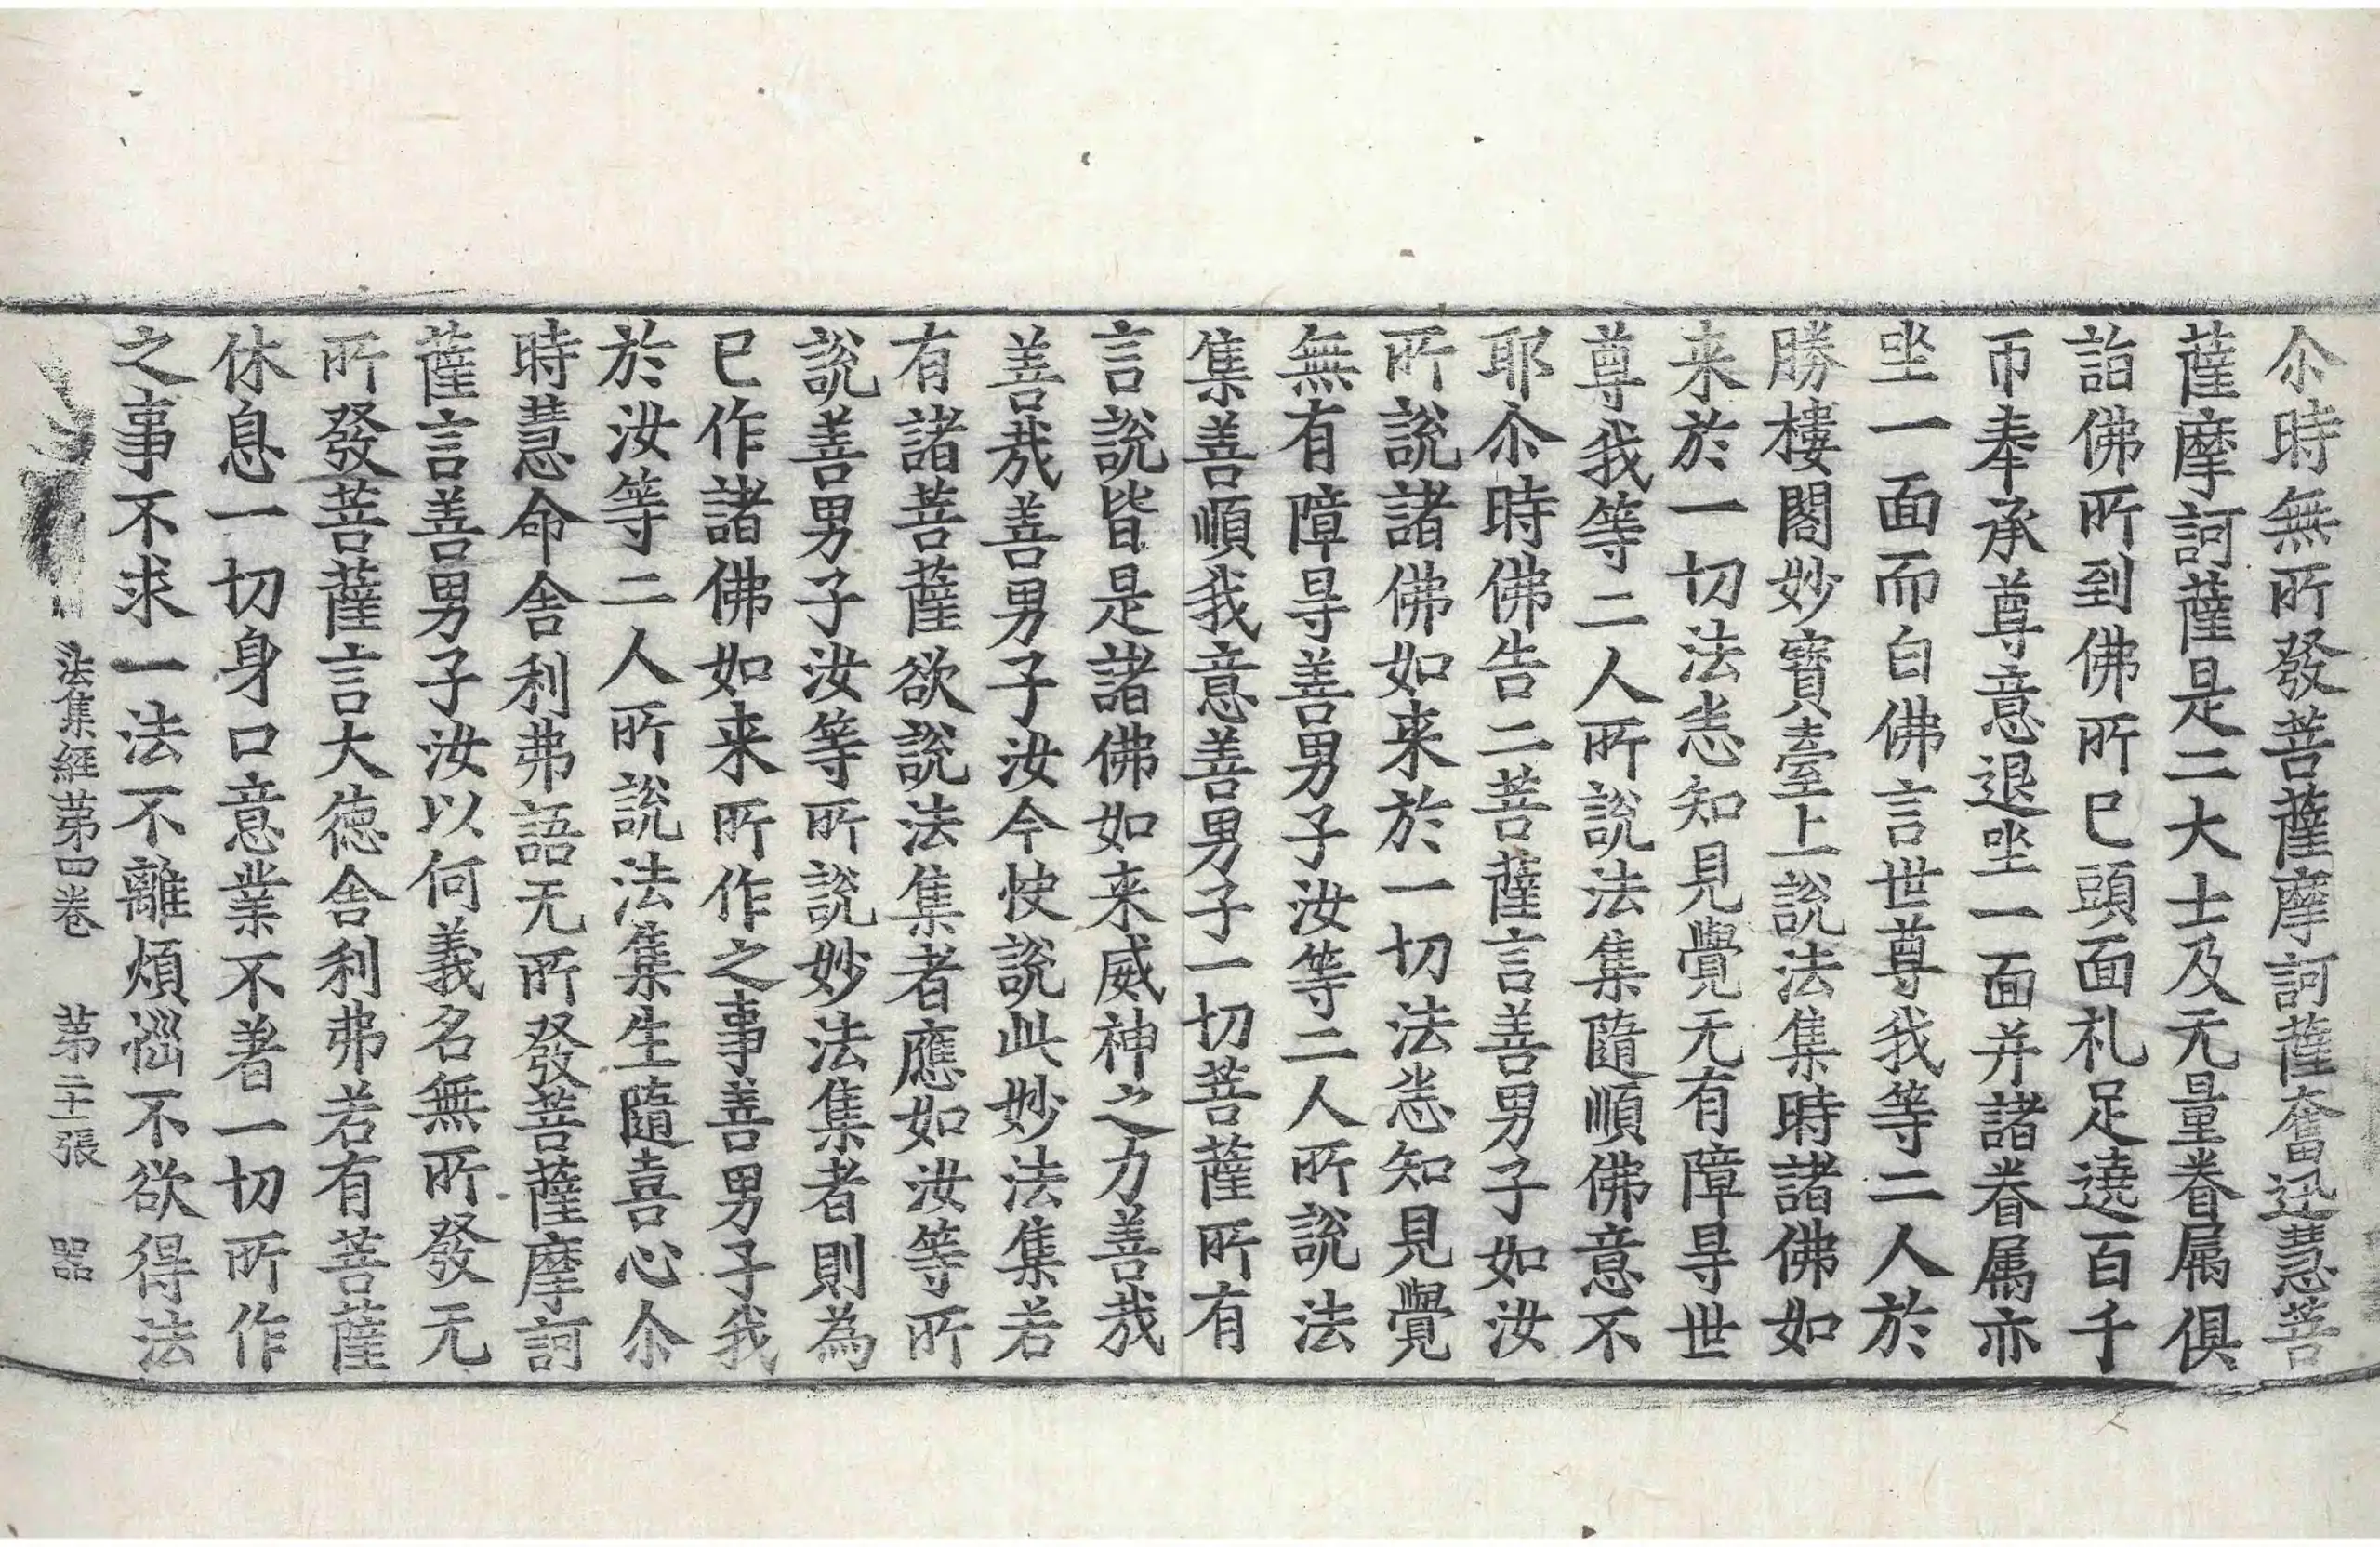 尒時無所發菩薩摩訶薩奮迅慧菩
薩摩訶薩是二大士及无量眷属俱
詣佛所到佛所已頭面礼足遶百千
帀奉承尊意退坐一面并諸眷属亦
坐一面而白佛言世尊我等二人於
勝樓閣妙寶臺上說法集時諸佛如
来於一切法恙知見覺无有障㝵世
尊我等二人所說法集隨順佛意不
耶尒時佛告二菩薩言善男子如汝
所說諸佛如来於一切法恙知見覺
無有障㝵善男子汝等二人所說法
集善順我意善男子一切菩薩所有
言說皆是諸佛如来威神之力善哉
善哉善男子汝今快說此妙法集若
有諸菩薩欲說法集者應如汝等所
說善男子汝等所說妙法集者則為
已作諸佛如来所作之事善男子我
於汝等二人所說法集生隨喜心尒
時慧命舎利弗語无所發菩薩摩訶
薩言善男子汝以何義名無所發无
所發菩薩言大徳舎利弗若有菩薩
休息一切身口意業不著一切所作
之事不求一法不離煩惱不欲得法
法集經第四卷 第二十一張 器